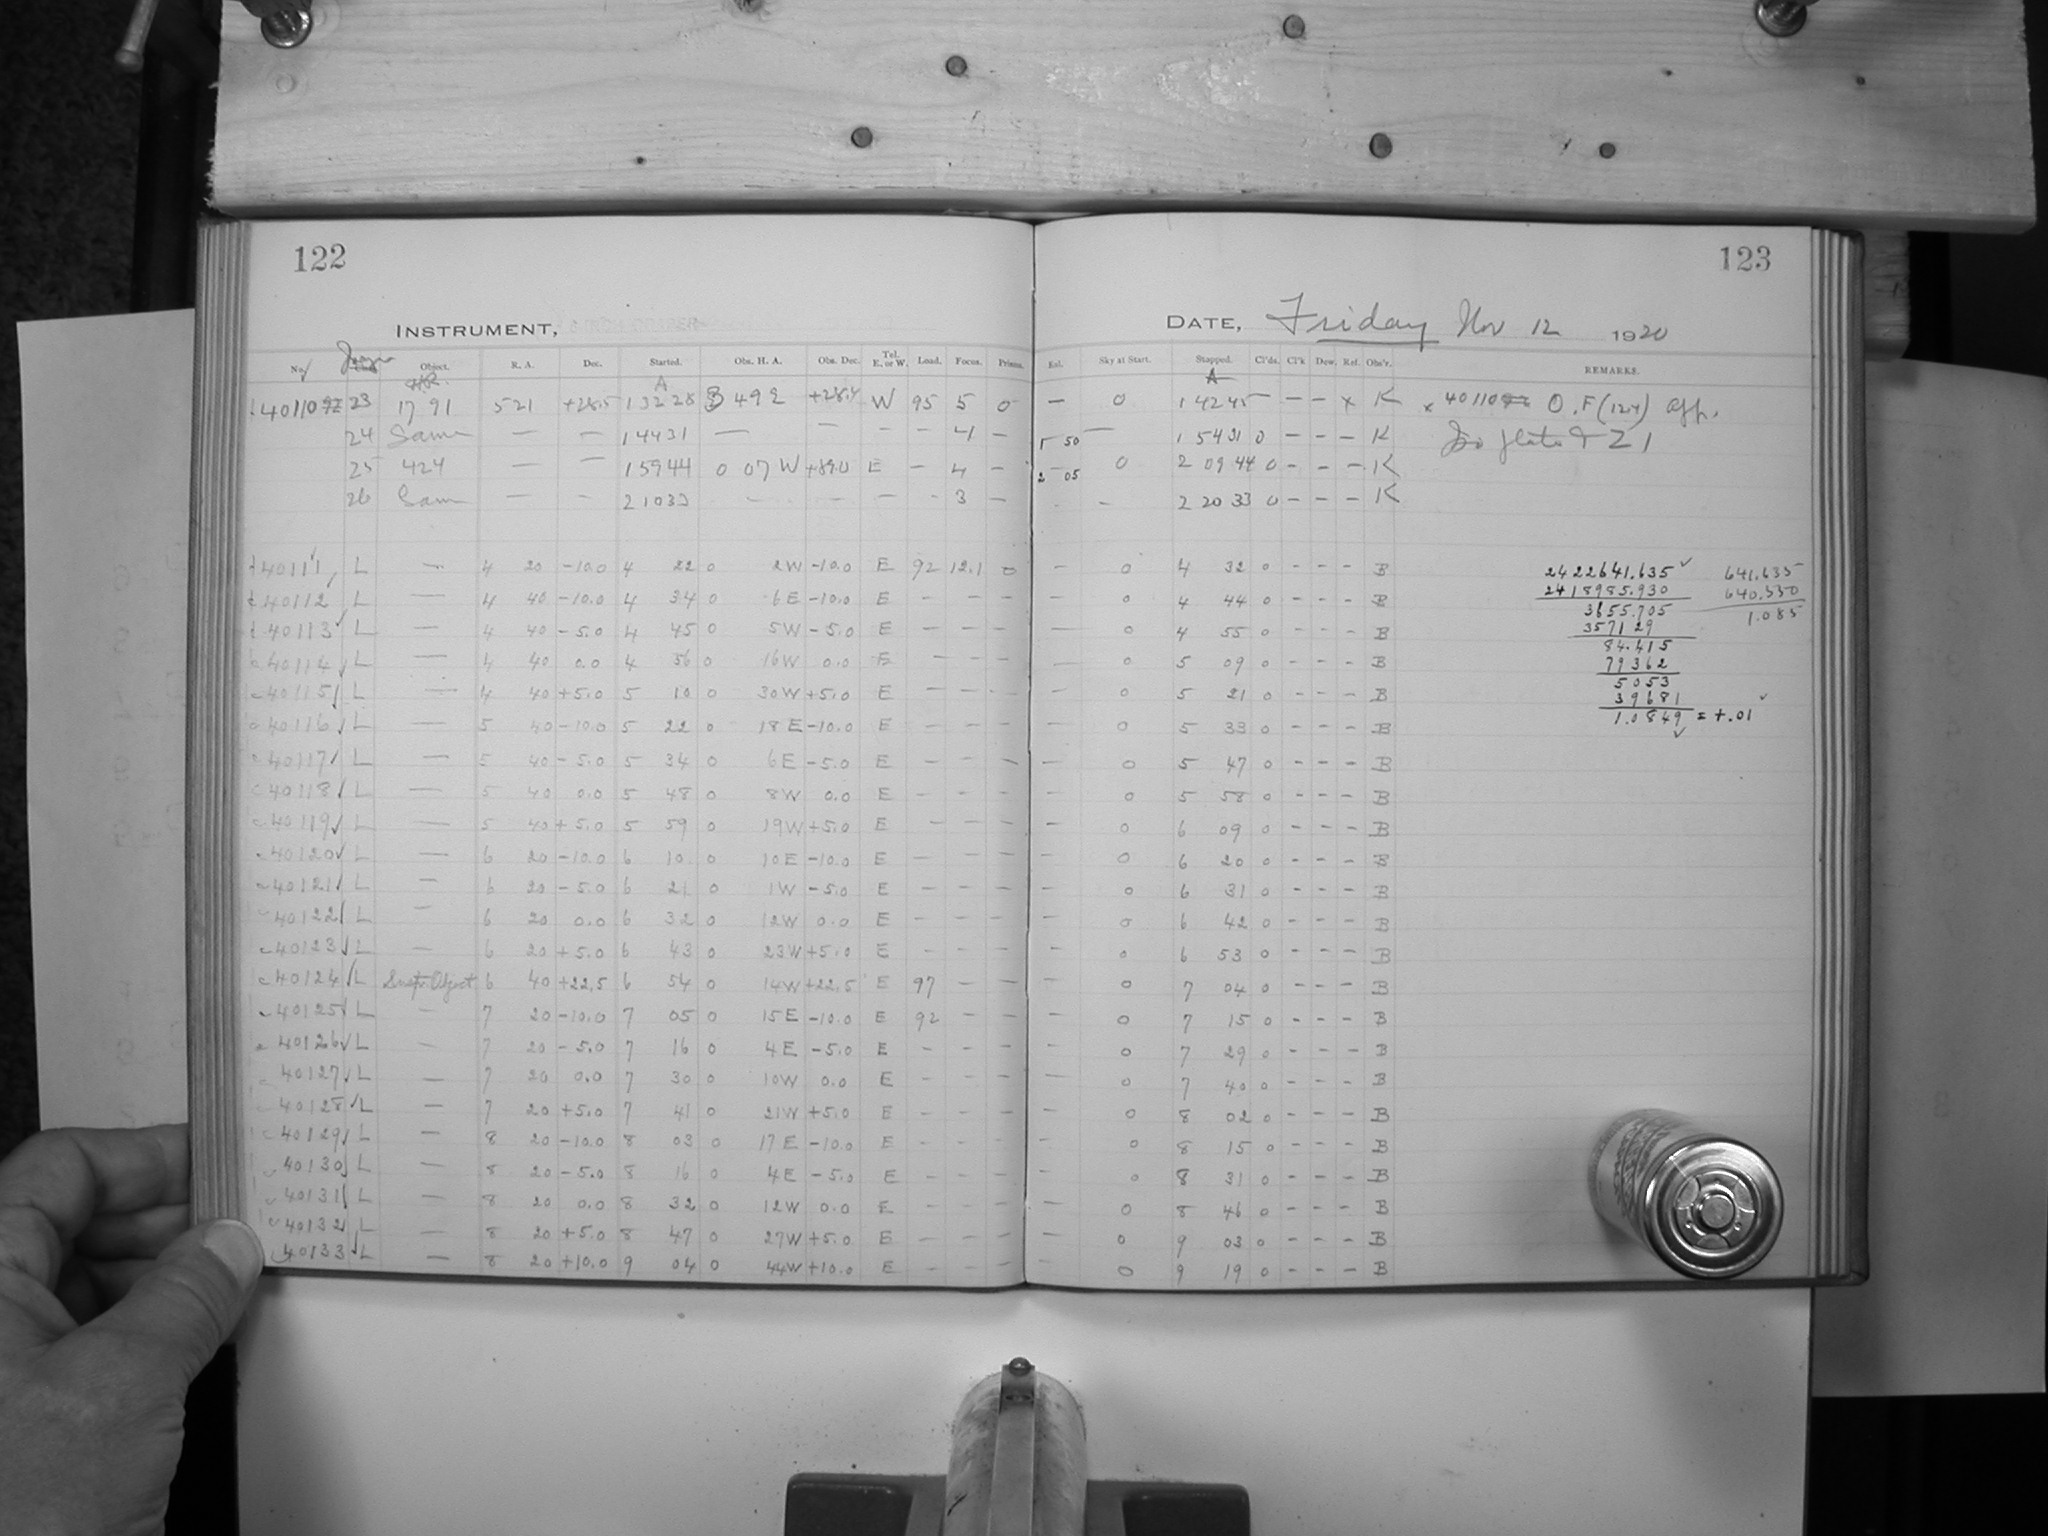 122
123
INSTRUMENT,
DATE, Friday Nov 12 1920
No. Object. R. A. Dec. Started. Obs. H. A. Obs. Dec. Tel. E. or W. Load. Focus. Prisms. Exl. Sky at Start. Stopped. Cl'ds. Cl'k Dew. Ref. Obs'r. REMARKS.
HR. A A
40110 23 1791 5 21 +28.5 1 32 28 3 49 E +28.4 W 95 5 0 — 0 1 42 45 — — x K x 40110 O.F (12.4) app.
24 Same — — 1 44 31 — — — — 4 — 1 50 — 1 54 31 0 — — — K
25 424 — — 1 59 44 0 07 W +89.0 E — 4 — 2 05 0 2 09 44 0 — — — K
26 Same — — 2 10 33 — — — — 3 — — 2 20 33 0 — — — K
40111 L — 4 20 -10.0 4 22 0 2W -10.0 E 92 12.1 0 — 0 4 32 0 - - - B
40112 L — 4 40 -10.0 4 34 0 6E -10.0 E — — — — 0 4 44 0 - - - B
40113 L — 4 40 -5.0 4 45 0 5W -5.0 E — — — — 0 4 55 0 - - - B
40114 L — 4 40 0.0 4 56 0 16W 0.0 E — — — — 0 5 09 0 - - - B
40115 L — 4 40 +5.0 5 10 0 30W +5.0 E — — — — 0 5 21 0 - - - B
40116 L — 5 40 -10.0 5 22 0 18E -10.0 E — — — — 0 5 33 0 - - - B
40117 L — 5 40 -5.0 5 34 0 6E -5.0 E — — — — 0 5 47 0 - - - B
40118 L — 5 40 0.0 5 48 0 8W 0.0 E — — — — 0 5 58 0 - - - B
40119 L — 5 40 +5.0 5 59 0 19W +5.0 E — — — — 0 6 09 0 - - - B
40120 L — 6 20 -10.0 6 10 0 10E -10.0 E — — — — 0 6 20 0 - - - B
40121 L — 6 20 -5.0 6 21 0 1W -5.0 E — — — — 0 6 31 0 - - - B
40122 L — 6 20 0.0 6 32 0 12W 0.0 E — — — — 0 6 42 0 - - - B
40123 L — 6 20 +5.0 6 43 0 23W +5.0 E — — — — 0 6 53 0 - - - B
40124 L Object 6 40 +22.5 6 54 0 14W +22.5 E 97 — — — 0 7 04 0 - - - B
40125 L — 7 20 -10.0 7 05 0 15E -10.0 E 92 — — — 0 7 15 0 - - - B
40126 L — 7 20 -5.0 7 16 0 4E -5.0 E — — — — 0 7 29 0 - - - B
40127 L — 7 20 0.0 7 30 0 10W 0.0 E — — — — 0 7 40 0 - - - B
40128 L — 7 20 +5.0 7 41 0 21W +5.0 E — — — — 0 8 02 0 - - - B
40129 L — 8 20 -10.0 8 03 0 17E -10.0 E — — — — 0 8 15 0 - - - B
40130 L — 8 20 -5.0 8 16 0 4E -5.0 E — — — — 0 8 31 0 - - - B
40131 L — 8 20 0.0 8 32 0 12W 0.0 E — — — — 0 8 46 0 - - - B
40132 L — 8 20 +5.0 8 47 0 27W +5.0 E — — — — 0 9 03 0 - - - B
40133 L — 8 20 +10.0 9 04 0 44W +10.0 E — — — — 0 9 19 0 - - - B
2422641.635 641.635
2418985.930 640.550
3655.705 1.085
357129
84.415
79362
5053
39681
1.0849 = +.01